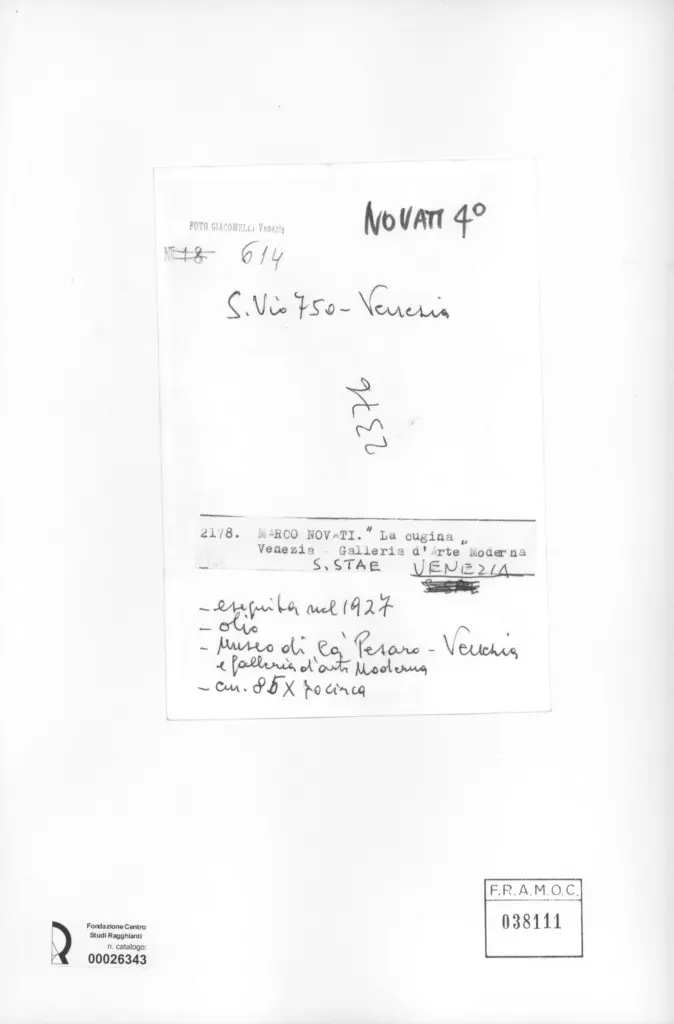 NOVATI 4°
FOTO GIACOMELLI Venezia
N° 18 614
S. Vio 750 - Venezia
2376
2178. MARCO NOVATI. "La cugina„
Venezia - Galleria d'Arte Moderna
S. STAE VENEZIA
- eseguita nel 1927
- olio
- Museo di Ca' Pesaro - Venezia
e Galleria d'arte Moderna
- cm. 85 X 70 circa
F.R.A.M.O.C.
038111
Fondazione Centro
Studi Ragghianti
n. catalogo:
00026343